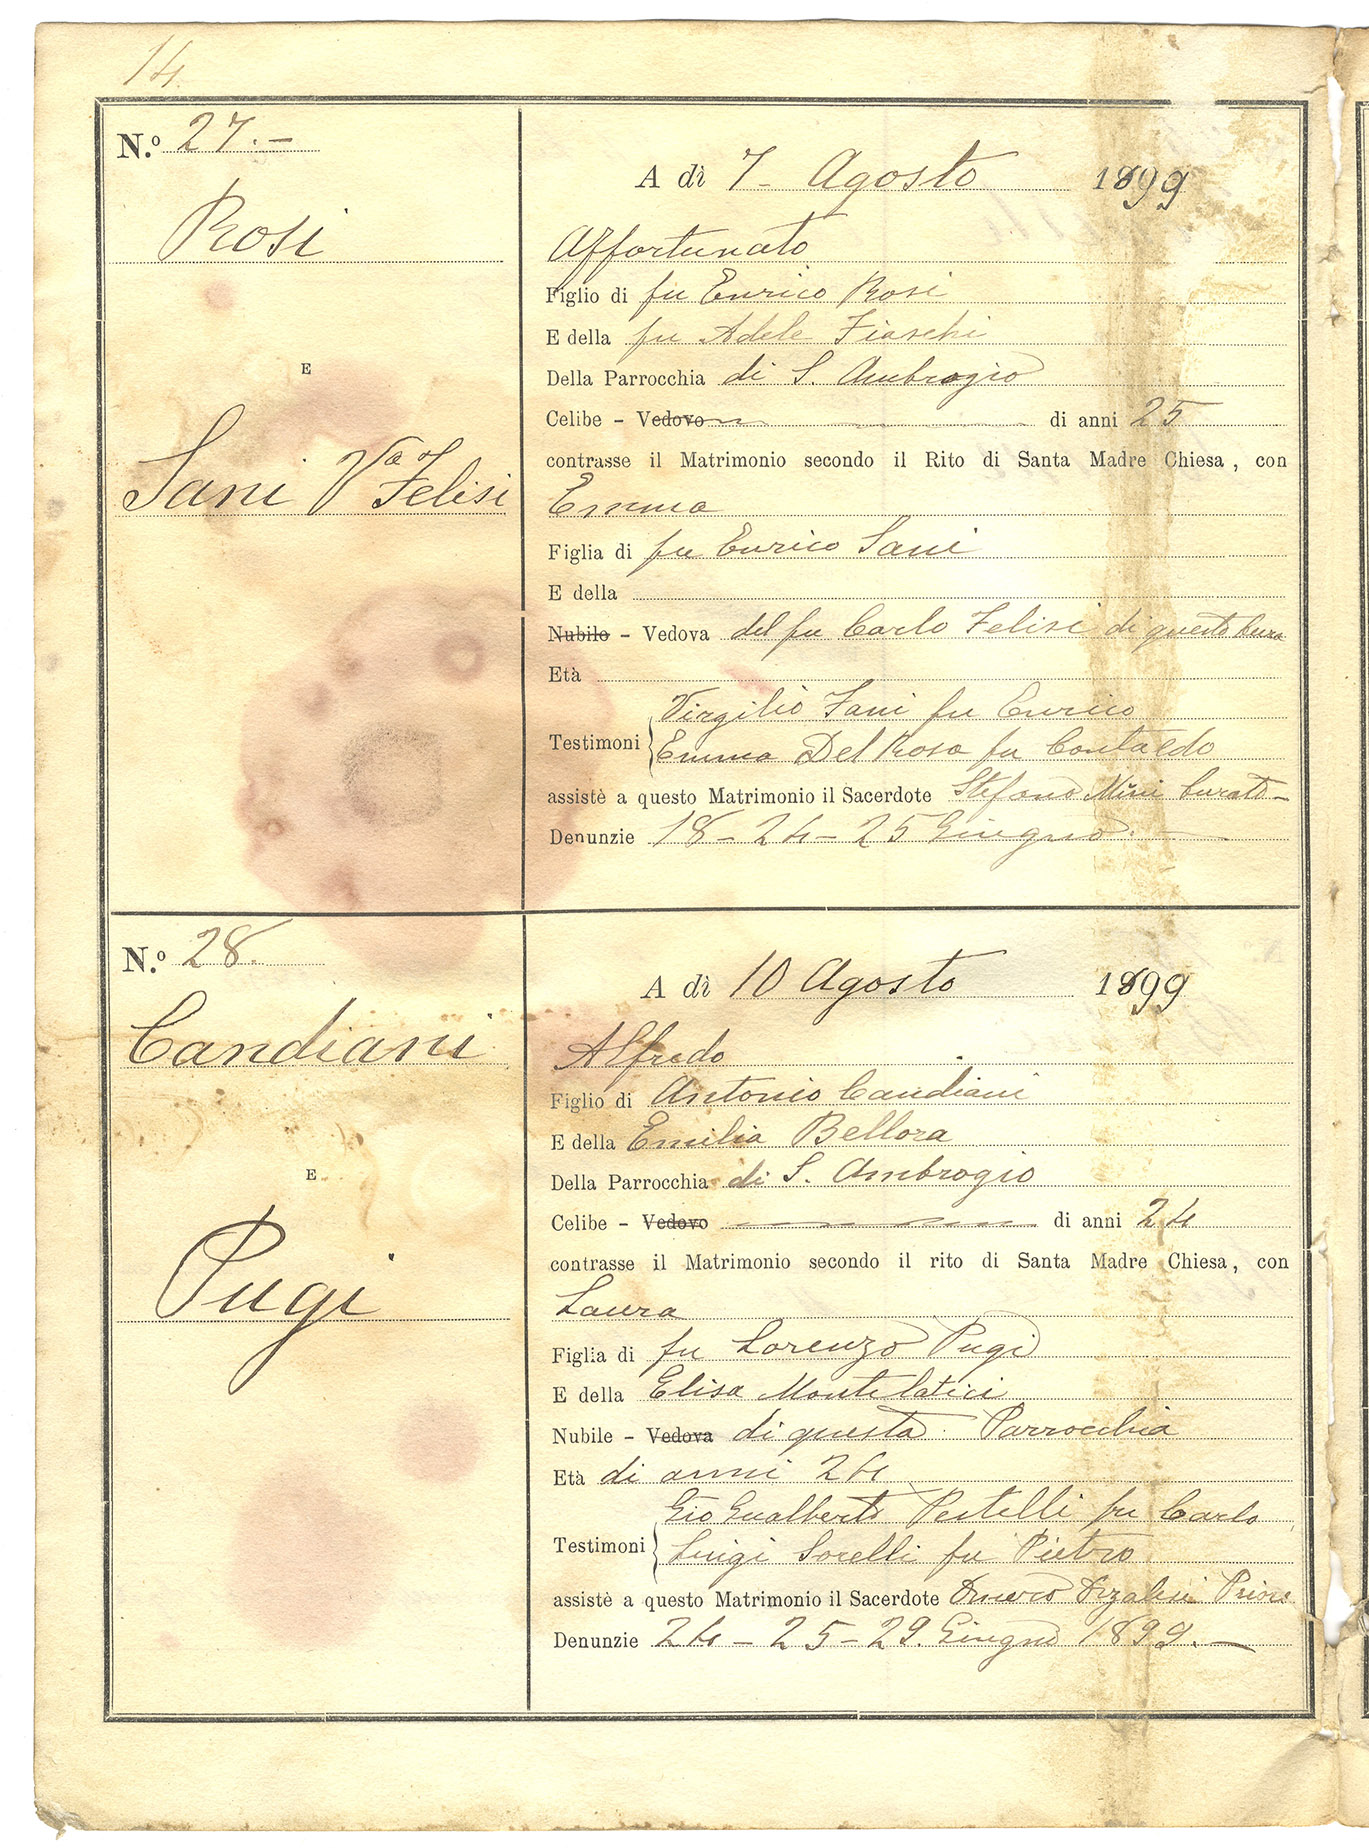 14
N.o 27.-
Rosi
E
Sani Va Felisi
A dì 7 - Agosto 1899
Affortunato
Figlio di fu Enrico Rosi
E della fu Adele Fiaschi
Della Parrocchia di S. Ambrogio
Celibe - Vedovo di anni 25
contrasse il Matrimonio secondo il Rito di Santa Madre Chiesa, con
Emma
Figlia di fu Enrico Sani
E della
Nubile - Vedova del fu Carlo Felisi di questa Cura
Età
Virgilio Sani fu Enrico
Testimoni
Emma Del Rosa fu Contaldo
assistè a questo Matrimonio il Sacerdote Stefano Mini Curato -
Denunzie 18 - 24 - 25 Giugno. -
N.o 28.
Candiani
E
Pugi
A dì 10 Agosto 1899
Alfredo
Figlio di Antonio Candiani
E della Emilia Bellora
Della Parrocchia di S. Ambrogio
Celibe - Vedovo di anni 24
contrasse il Matrimonio secondo il rito di Santa Madre Chiesa, con
Laura
Figlia di fu Lorenzo Pugi
E della Elisa Montelatici
Nubile - Vedova di questa Parrocchia
Età di anni 24
Gio Gualberto Pestelli fu Carlo
Testimoni
Luigi Sorelli fu Pietro
assistè a questo Matrimonio il Sacerdote Priore
Denunzie 24 - 25 - 29. Giugno 1899. -